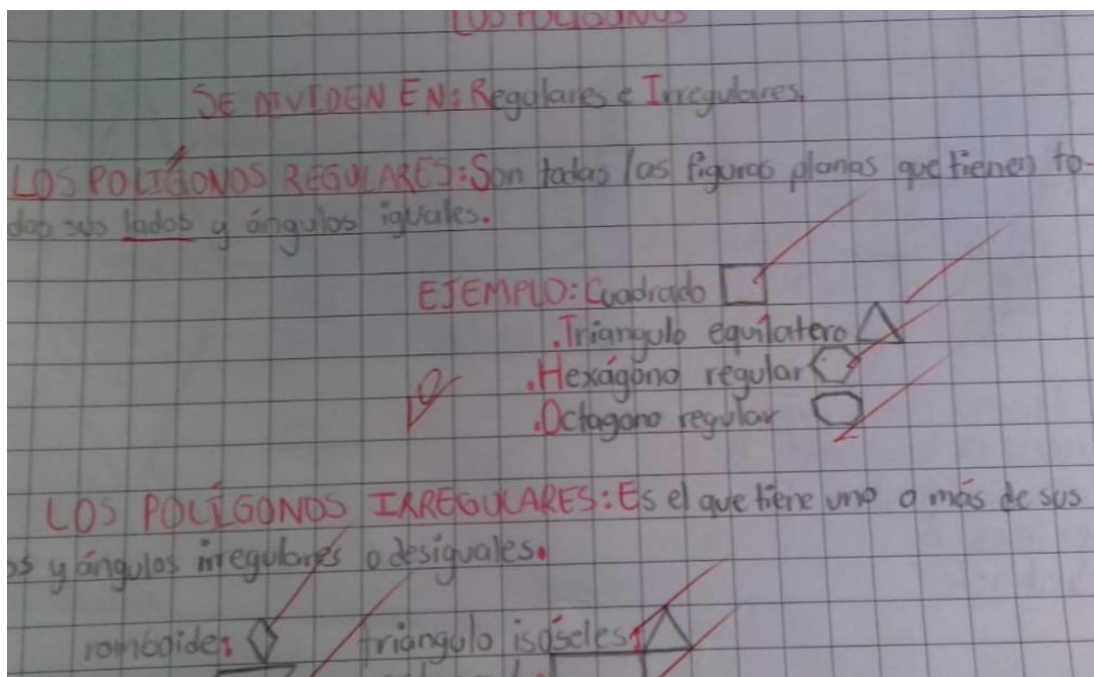 LOS POLÍGONOS
SE DIVIDEN EN: Regulares e Irregulares.
LOS POLÍGONOS REGULARES: Son todas las figuras planas que tienen to-
dos sus lados y ángulos iguales.
EJEMPLO: Cuadrado
.Triangulo equilatero
.Hexágono regular
.Octagono regular
LOS POLÍGONOS IRREGULARES: Es el que tiene uno o más de sus
os y ángulos irregulares o desiguales.
romboide: triángulo isósceles: